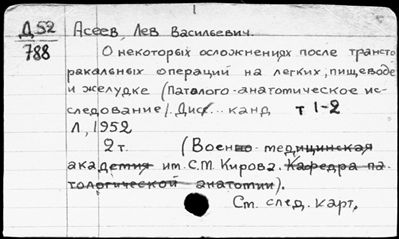 Д 52
788
Асеев, Лев Васильевич.
О некоторых осложнениях после трансто
ракальных операций на легких, пищеводе
и желудке (Паталого-анатомическое ис-
следование). Дисс... канд т 1-2
Л, 1952
2 т. (Военно-медицинская
академия им. С.М. Кирова. Кафедра па
тологической анатомии).
См. след. карт.